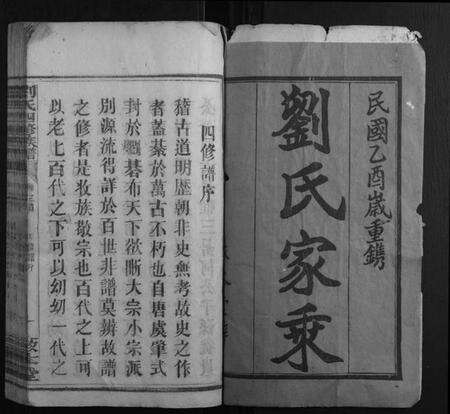 民國乙酉歲重鐫
劉氏家乘
四修譜序
稽古道明歷朝非史無考故史之作
者蓋綦於萬古不朽也自唐虞肇式
封於碁布天下欲晰大宗小宗派
別源流得詳於百世非譜莫辨故譜
之修者是收族敬宗也百代之上可
以老老百代之下可以幼幼一代之
劉氏四修族譜